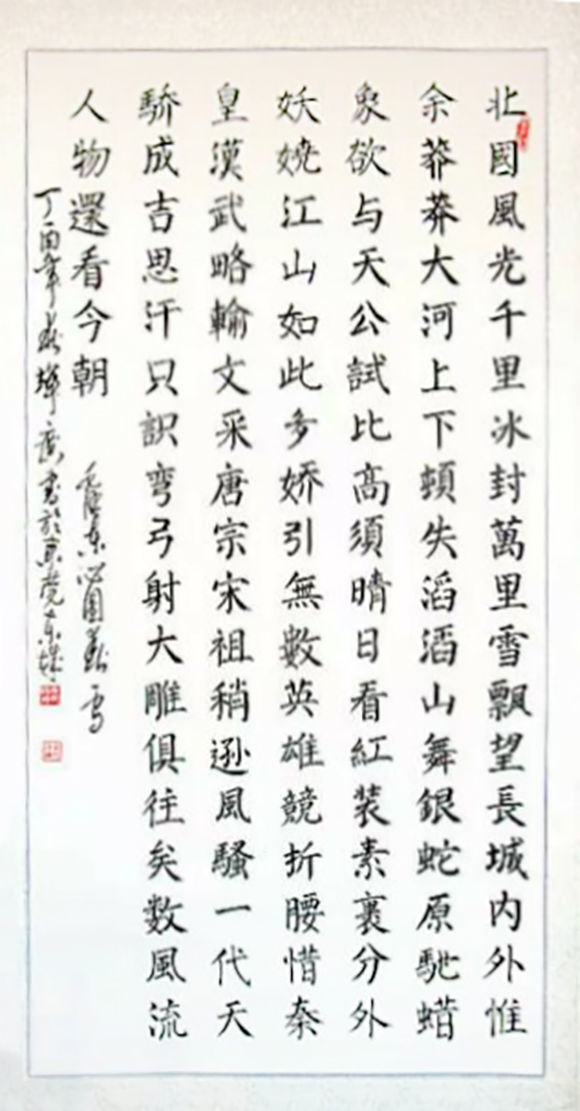 北國風光千里冰封萬里雪飄望長城内外惟
余莽莽大河上下頓失滔滔山舞銀蛇原馳蜡
象欲与天公試比高須晴日看紅装素裹分外
妖娆江山如此多娇引無數英雄競折腰惜秦
皇漢武略輸文采唐宗宋祖稍逊風騷一代天
驕成吉思汗只識弯弓射大雕俱往矣数風流
人物還看今朝
毛泽东沁园春雪
丁酉年
書於東莞